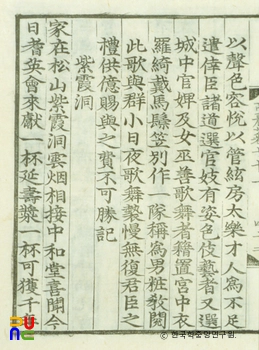 以聲色容悅以管絃房太樂才人爲不足
遣倖臣諸道選官妓有姿色伎藝者又選
城中官婢及女巫善歌舞者籍置宮中衣
羅綺戴馬騣笠別作一隊稱爲男粧敎閱
此歌與群小日夜歌舞褻慢無復君臣之
禮供億賜與之費不可勝記
紫霞洞
家在松山紫霞洞雲烟相接中和堂喜聞今
日耆英會來獻一杯延壽漿一杯可獲千
© 한국학중앙연구원